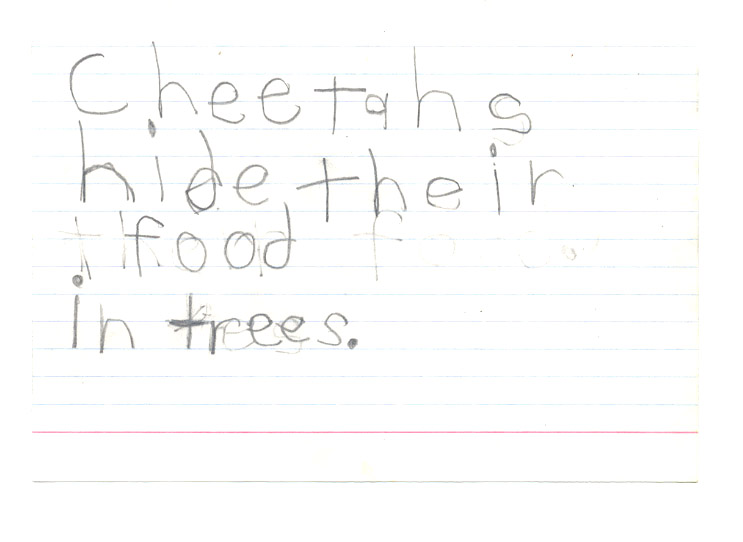 Cheetahs
hide their
food
in trees.